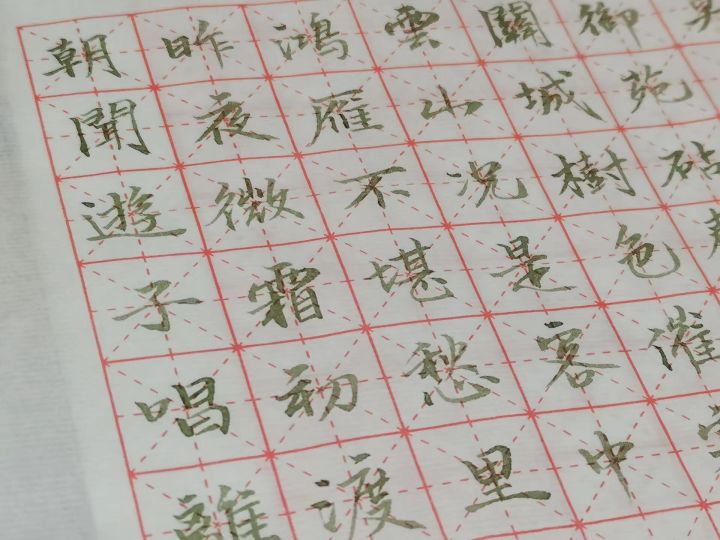 朝聞遊子唱離
昨夜微霜初渡
鴻雁不堪愁里
雲山況是客中
關城樹色催
御苑砧